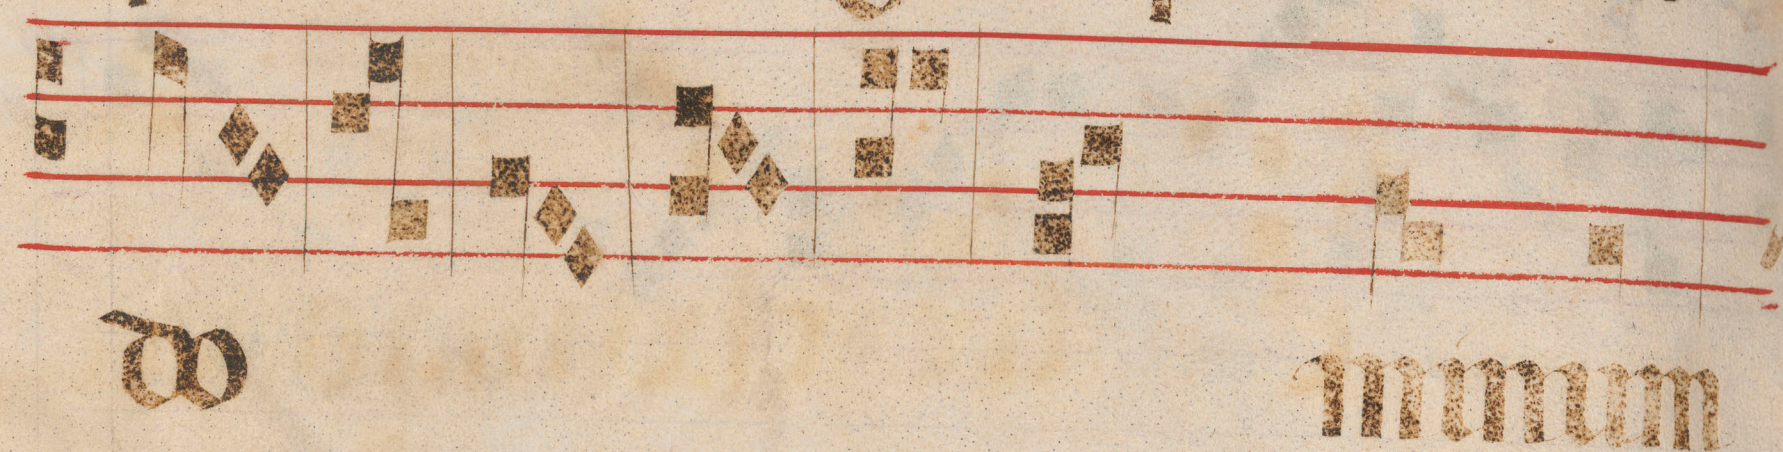 do minum